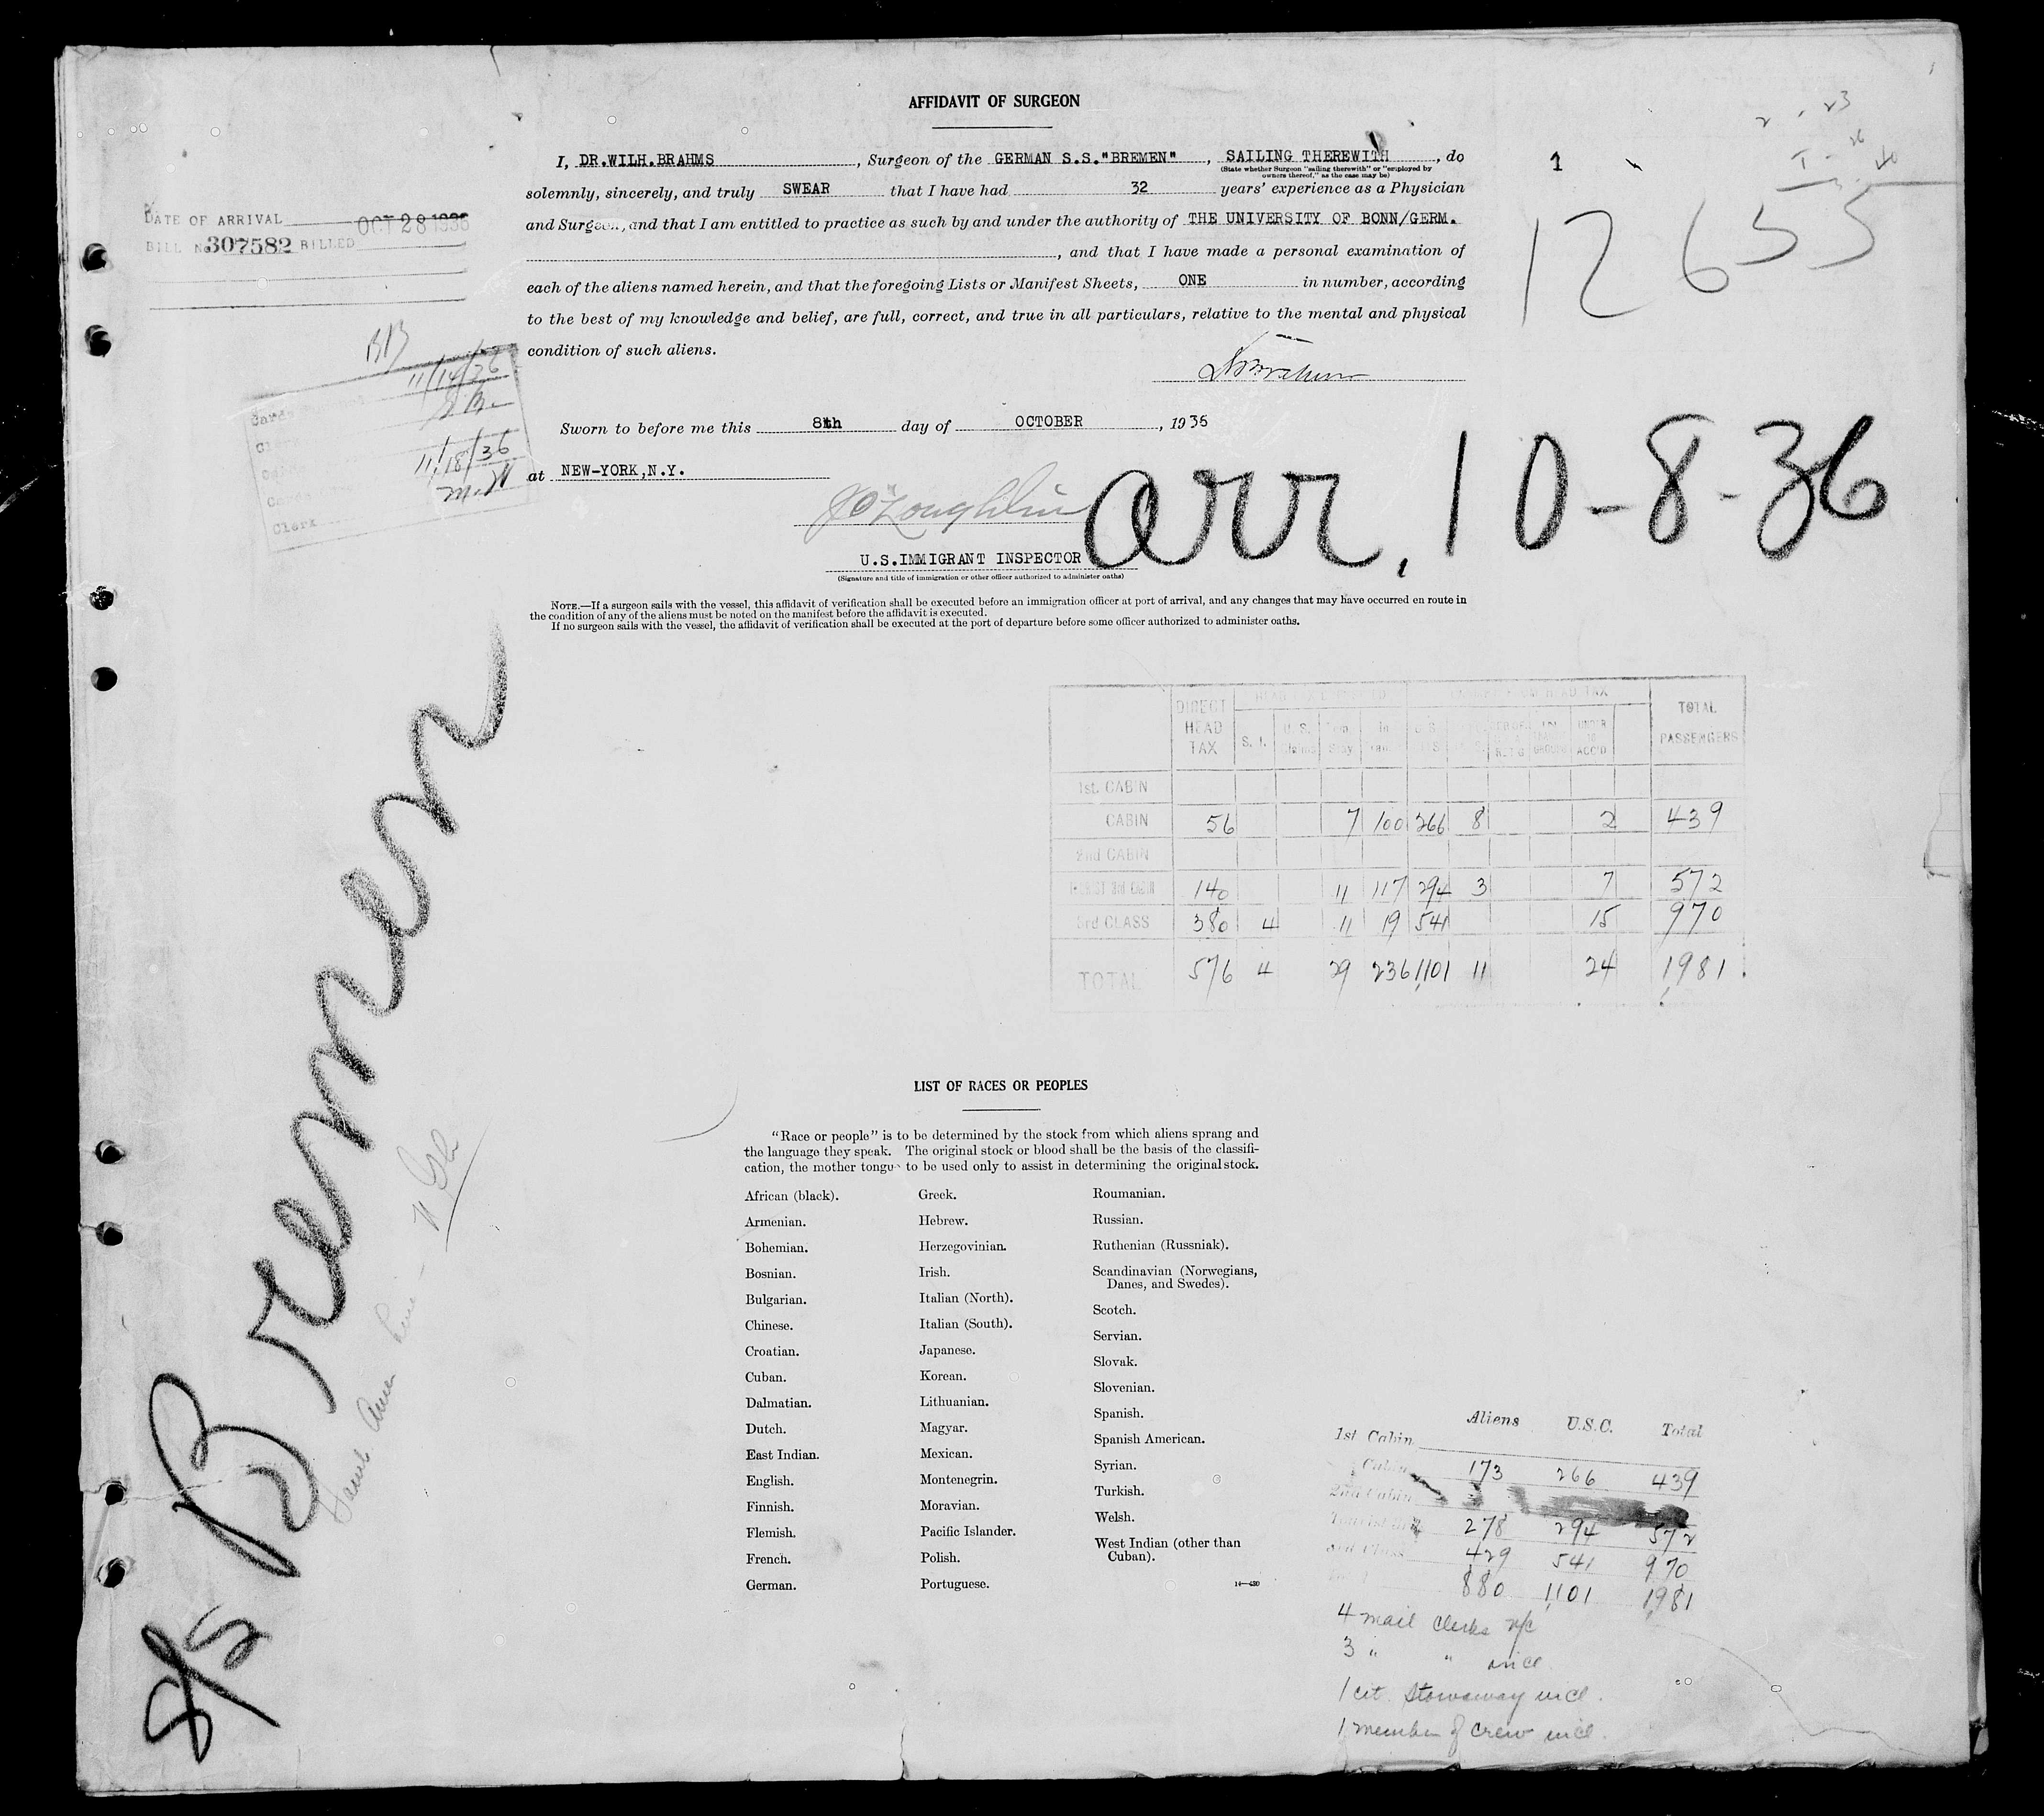 AFFIDAVIT OF SURGEON
I, DR.WILH.BRAHMS, Surgeon of the GERMAN S.S."BREMEN", SAILING THEREWITH, do
(State whether Surgeon "sailing therewith" or "employed by
owners thereof," as the case may be)
solemnly, sincerely, and truly SWEAR that I have had 32 years' experience as a Physician
and Surgeon, and that I am entitled to practice as such by and under the authority of THE UNIVERSITY OF BONN/GERM.
, and that I have made a personal examination of
each of the aliens named herein, and that the foregoing Lists or Manifest Sheets, ONE in number, according
to the best of my knowledge and belief, are full, correct, and true in all particulars, relative to the mental and physical
condition of such aliens.
Sworn to before me this 8th day of OCTOBER, 1936
at NEW-YORK,N.Y.
J O'Loughlin
U.S.IMMIGRANT INSPECTOR
(Signature and title of immigration or other officer authorized to administer oaths)
NOTE.—If a surgeon sails with the vessel, this affidavit of verification shall be executed before an immigration officer at port of arrival, and any changes that may have occurred en route in
the condition of any of the aliens must be noted on the manifest before the affidavit is executed.
If no surgeon sails with the vessel, the affidavit of verification shall be executed at the port of departure before some officer authorized to administer oaths.
DATE OF ARRIVAL
OCT 28 1936
BILL No 307582 BILLED
11/14/36
11/18/36
Clerk
1
12655
arr. 10-8-36
S/S Bremen
DIRECT HEAD TAX
S. I.
U. S.
HEAD TAX
UNDER 16 ACC'D
TOTAL PASSENGERS
1st. CABIN
CABIN 56 7 100 266 8 2 439
2nd CABIN
140 11 117 294 3 7 572
3rd CLASS 380 4 11 19 541 15 970
TOTAL 576 4 29 236 1,101 11 24 1,981
LIST OF RACES OR PEOPLES
"Race or people" is to be determined by the stock from which aliens sprang and
the language they speak. The original stock or blood shall be the basis of the classifi-
cation, the mother tongue to be used only to assist in determining the original stock.
African (black).
Armenian.
Bohemian.
Bosnian.
Bulgarian.
Chinese.
Croatian.
Cuban.
Dalmatian.
Dutch.
East Indian.
English.
Finnish.
Flemish.
French.
German.
Greek.
Hebrew.
Herzegovinian.
Irish.
Italian (North).
Italian (South).
Japanese.
Korean.
Lithuanian.
Magyar.
Mexican.
Montenegrin.
Moravian.
Pacific Islander.
Polish.
Portuguese.
Roumanian.
Russian.
Ruthenian (Russniak).
Scandinavian (Norwegians,
Danes, and Swedes).
Scotch.
Servian.
Slovak.
Slovenian.
Spanish.
Spanish American.
Syrian.
Turkish.
Welsh.
West Indian (other than
Cuban).
Aliens U.S.C. Total
1st Cabin
Cabin 173 266 439
2nd Cabin
Tourist 278 294 572
3rd Class 429 541 970
880 1,101 1,981
4 mail clerks n/c
3 " " incl
1 cit. Stowaway incl.
1 member of crew incl.